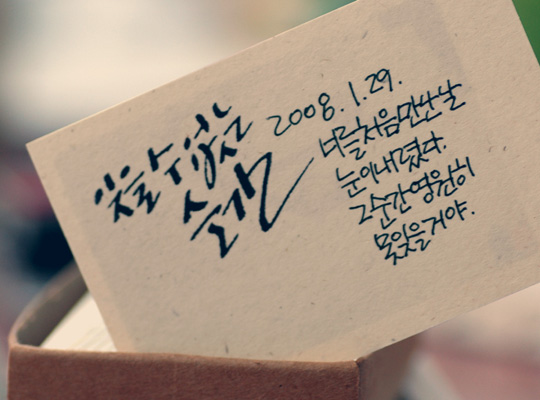 잊을 수 없는
순간
2008.1.29.
너를 처음 만난 날
눈이 내렸다.
그 순간 영원히
못 잊을 거야.